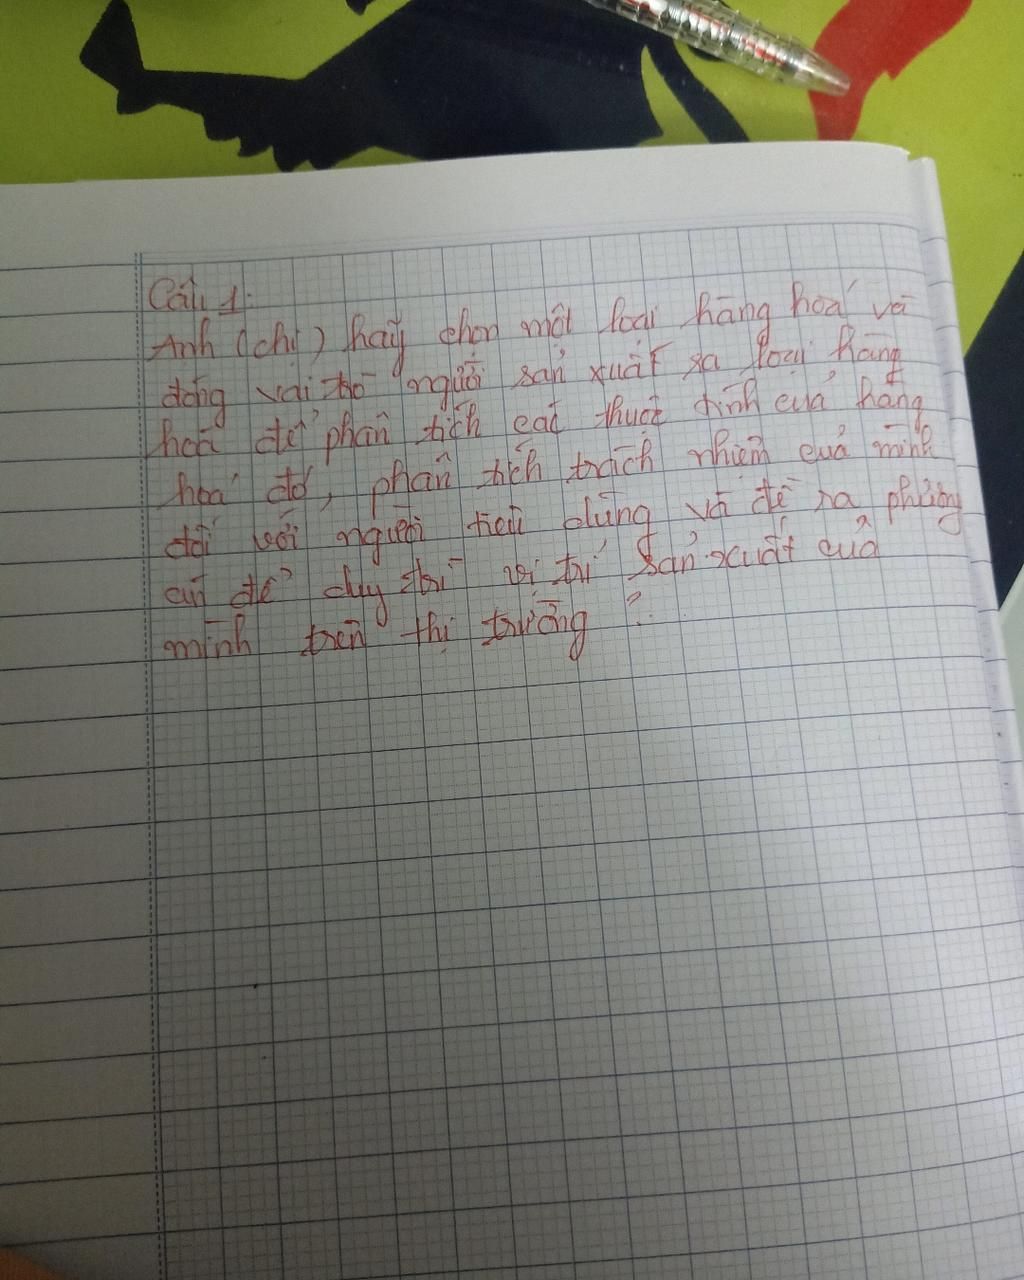 Câu 1:
Anh (chị) hãy chọn một loại hàng hoá và
đóng vai trò người sản xuất ra loại hàng
hoá để phân tích các thuộc tính của hàng
hoá đó, phân tích trách nhiệm của mình
đối với người tiêu dùng và đề ra phương
án để duy trì vị trí sản xuất của
mình trên thị trường ?